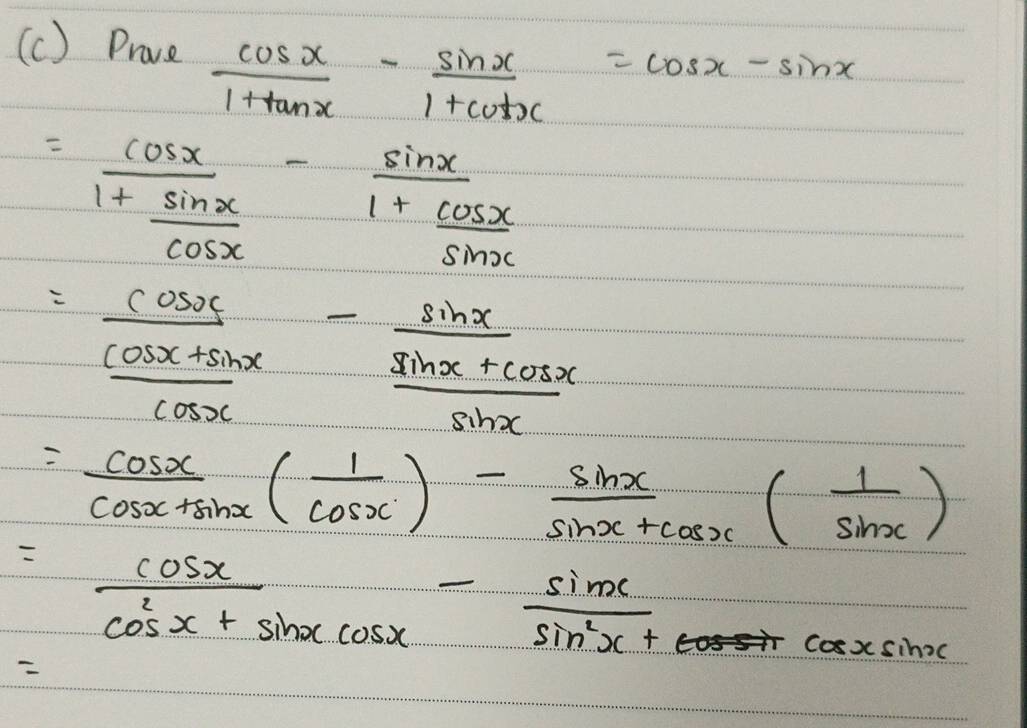 (c) Prove cosx / 1+tanx - sinx / 1+cotx = cosx - sinx
= cosx / 1 + sinx / cosx - sinx / 1 + cosx / sinx
= cosx / cosx+sinx / cosx - sinx / sinx+cosx / sinx
= cosx / cosx+sinx (1 / cosx) - sinx / sinx+cosx (1 / sinx)
= cosx / cos²x + sinx cosx - sinx / sin²x + cosx sinx
=